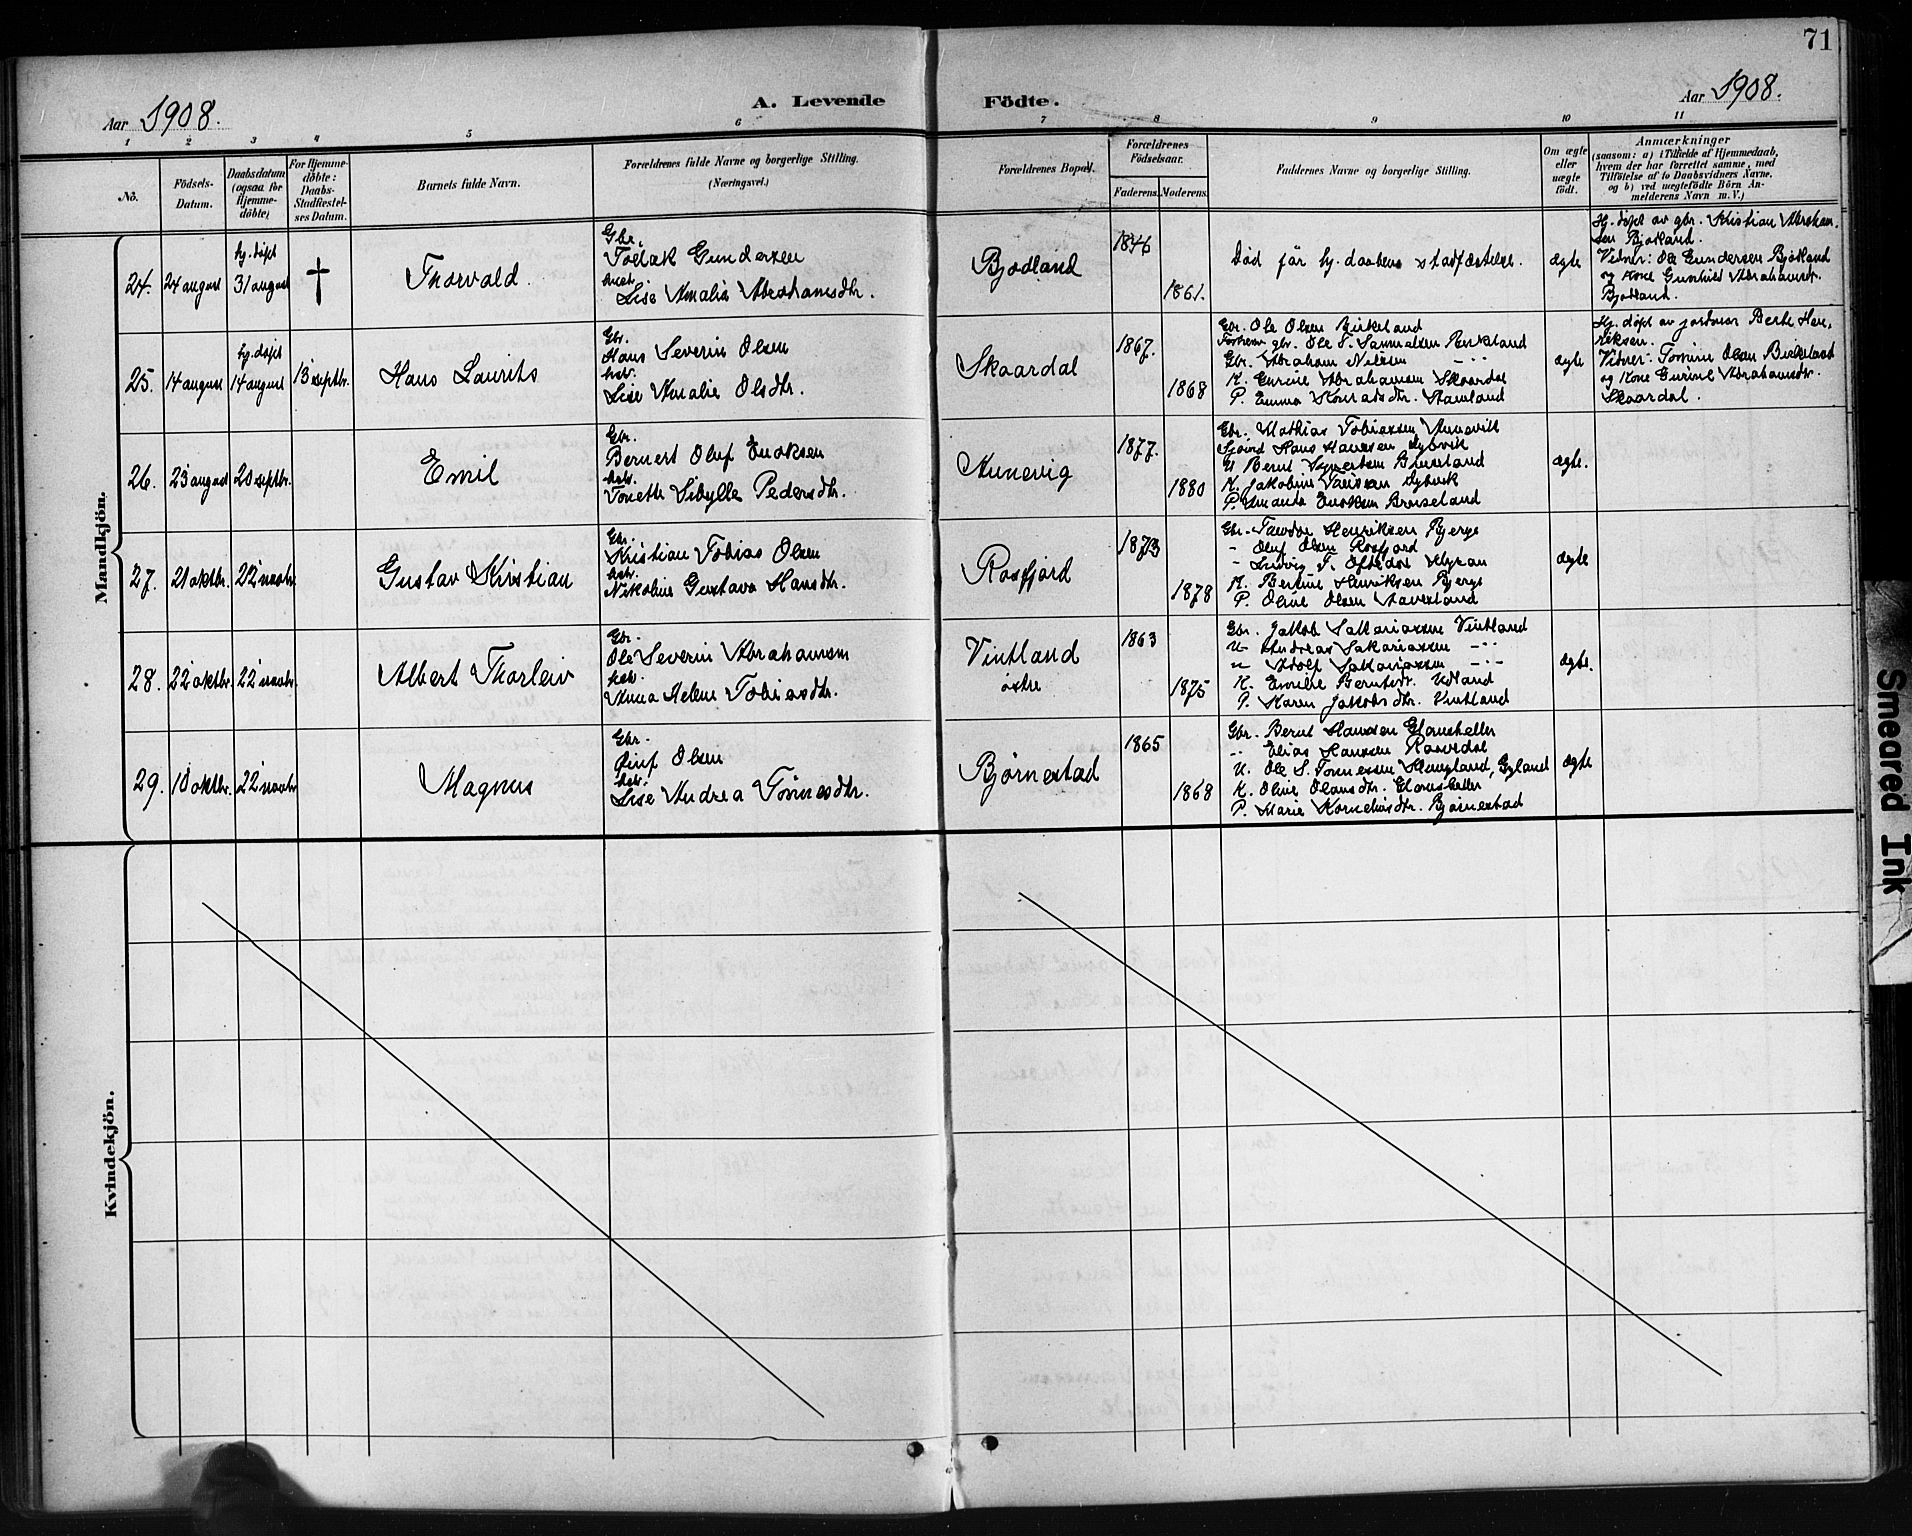 71
Aar 1908.
A. Levende
Födte.
Aar 1908.
1
2
3
4
5
6
7
8
9
10
11
Nö.
Födsels-
Datum.
Daabsdatum
(ogsaa for
Hjemme-
döbte)
For Hjemme-
döbte:
Daabs-
Stadfæstel-
ses Datum.
Barnets fulde Navn.
Forældrenes fulde Navne og borgerlige Stilling.
(Næringsvei.)
Forældrenes Bopæl.
Forældrenes
Födselsaar.
Faderens.
Moderens.
Faddernes Navne og borgerlige Stilling.
Om ægte
eller
uægte
födt.
Anmærkninger
(saasom: a) i Tilfælde af Hjemmedaab,
hvem der har forrettet samme, med
Tilföielse af to Daabsvidners Navne,
og b) ved uægtefödte Börn An-
melderens Navn m. V.)
Mandkjön.
24.
24 august
hj. døpt
31 august
†
Thorvald.
Gbr.
Tollak Gundersen
hust.
Lise Amalia Abrahamsdtr.
Bjodland
1846
1861.
Død før hj. daabens stadfæstelse.
ægte
Hj. døpt av gbr. Kristian Abraham-
sen Bjodland.
Vidner: Ole Gundersen Bjodland
og Kone Gunhild Abrahamsdtr.
Bjodland.
25.
14 august
hj. døpt
14 august
13 septbr.
Hans Laurits
Gbr.
Hans Severin Olsen
hstr.
Lise Amalie Olsdtr.
Skaardal
1867.
1868
Gbr. Ole Olsen Birkeland
gbr. Ole S. Samuelsen Birkeland
Gbr. Abraham Nilsen -"-
K. Gurine Abrahamsen Skaardal
P. Emma
ægte
Hj. døpt av jordmor Berte Hen-
riksen.
Vidner: Tomine Olsen Birkeland
og Kone Gurine Abrahamsdtr.
Skaardal.
26.
23 august
20 septbr.
Emil
Gbr.
Bernert Oluf Enoksen
hstr.
Tonette Sibylle Pedersdtr.
Aunevig
1877.
1880
Gbr. Mathias Tobiassen Aunevik
Hans Hansen
U Bernt
K. Jakobine
P. Amanda Enoksen
ægte.
27.
21 oktbr.
22 novbr.
Gustav Kristian
Gbr.
Kristian Tobias Olsen
hstr.
Nikoline Gustava Hansdtr.
Rosfjord
1873
1878
Gbr. Teodor Henriksen Bjerge
- Oluf Olsen Rosfjord
- Ludvig T. Oftedal
K. Bertine Henriksen Bjerge
P. Oline Olsen
ægte
28.
22 oktbr.
22 novbr.
Albert Thorleiv
Gbr.
Ole Severin Abrahamsen
hstr.
Anna Helene Tobiasdtr.
Vintland
østre
1863
1875
Gbr. Jakob Sakariassen Vintland
U- Andreas Sakariassen -"-
u- Adolf Sakariassen -"-
K. Emilie Berntsdtr. Udland
P. Karen Jakobsdtr. Vintland
ægte.
29.
10 oktbr.
22 novbr.
Magnus
Gbr.
Olsen
hstr.
Lise Andrea Tønnesdtr.
Bjørnestad
1865
1868
Gbr. Bernt Hansen Glomsheller
-"- Elias Hansen
U. Ole S. Tønnessen Skougland, Gyland
K. Oline Olausdtr. Glomsheller
P. Marie Korneliusdtr. Bjørnestad
ægte
Kvindekjön.
Smeared Ink